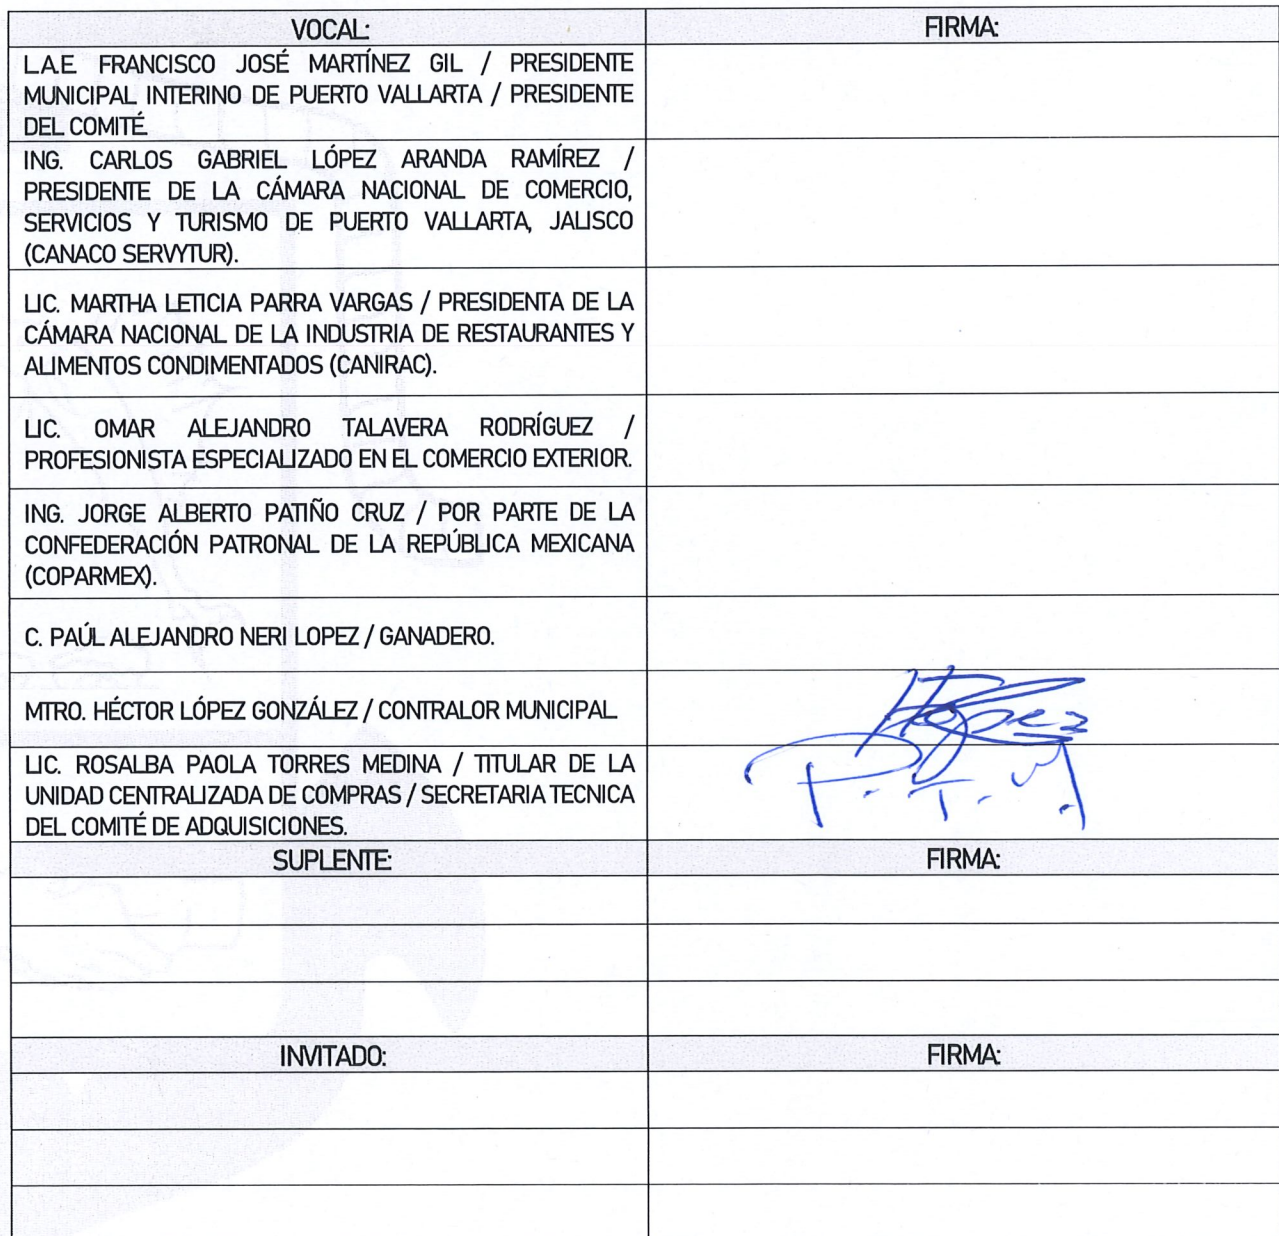 VOCAL: FIRMA:
L.A.E. FRANCISCO JOSÉ MARTÍNEZ GIL / PRESIDENTE
MUNICIPAL INTERINO DE PUERTO VALLARTA / PRESIDENTE
DEL COMITÉ.
ING. CARLOS GABRIEL LÓPEZ ARANDA RAMÍREZ /
PRESIDENTE DE LA CÁMARA NACIONAL DE COMERCIO,
SERVICIOS Y TURISMO DE PUERTO VALLARTA, JALISCO
(CANACO SERVYTUR).
LIC. MARTHA LETICIA PARRA VARGAS / PRESIDENTA DE LA
CÁMARA NACIONAL DE LA INDUSTRIA DE RESTAURANTES Y
ALIMENTOS CONDIMENTADOS (CANIRAC).
LIC. OMAR ALEJANDRO TALAVERA RODRÍGUEZ /
PROFESIONISTA ESPECIALIZADO EN EL COMERCIO EXTERIOR.
ING. JORGE ALBERTO PATIÑO CRUZ / POR PARTE DE LA
CONFEDERACIÓN PATRONAL DE LA REPÚBLICA MEXICANA
(COPARMEX).
C. PAÚL ALEJANDRO NERI LOPEZ / GANADERO.
MTRO. HÉCTOR LÓPEZ GONZÁLEZ / CONTRALOR MUNICIPAL
LIC. ROSALBA PAOLA TORRES MEDINA / TITULAR DE LA
UNIDAD CENTRALIZADA DE COMPRAS / SECRETARIA TECNICA
DEL COMITÉ DE ADQUISICIONES.
P. T. M.
SUPLENTE: FIRMA:
INVITADO: FIRMA: